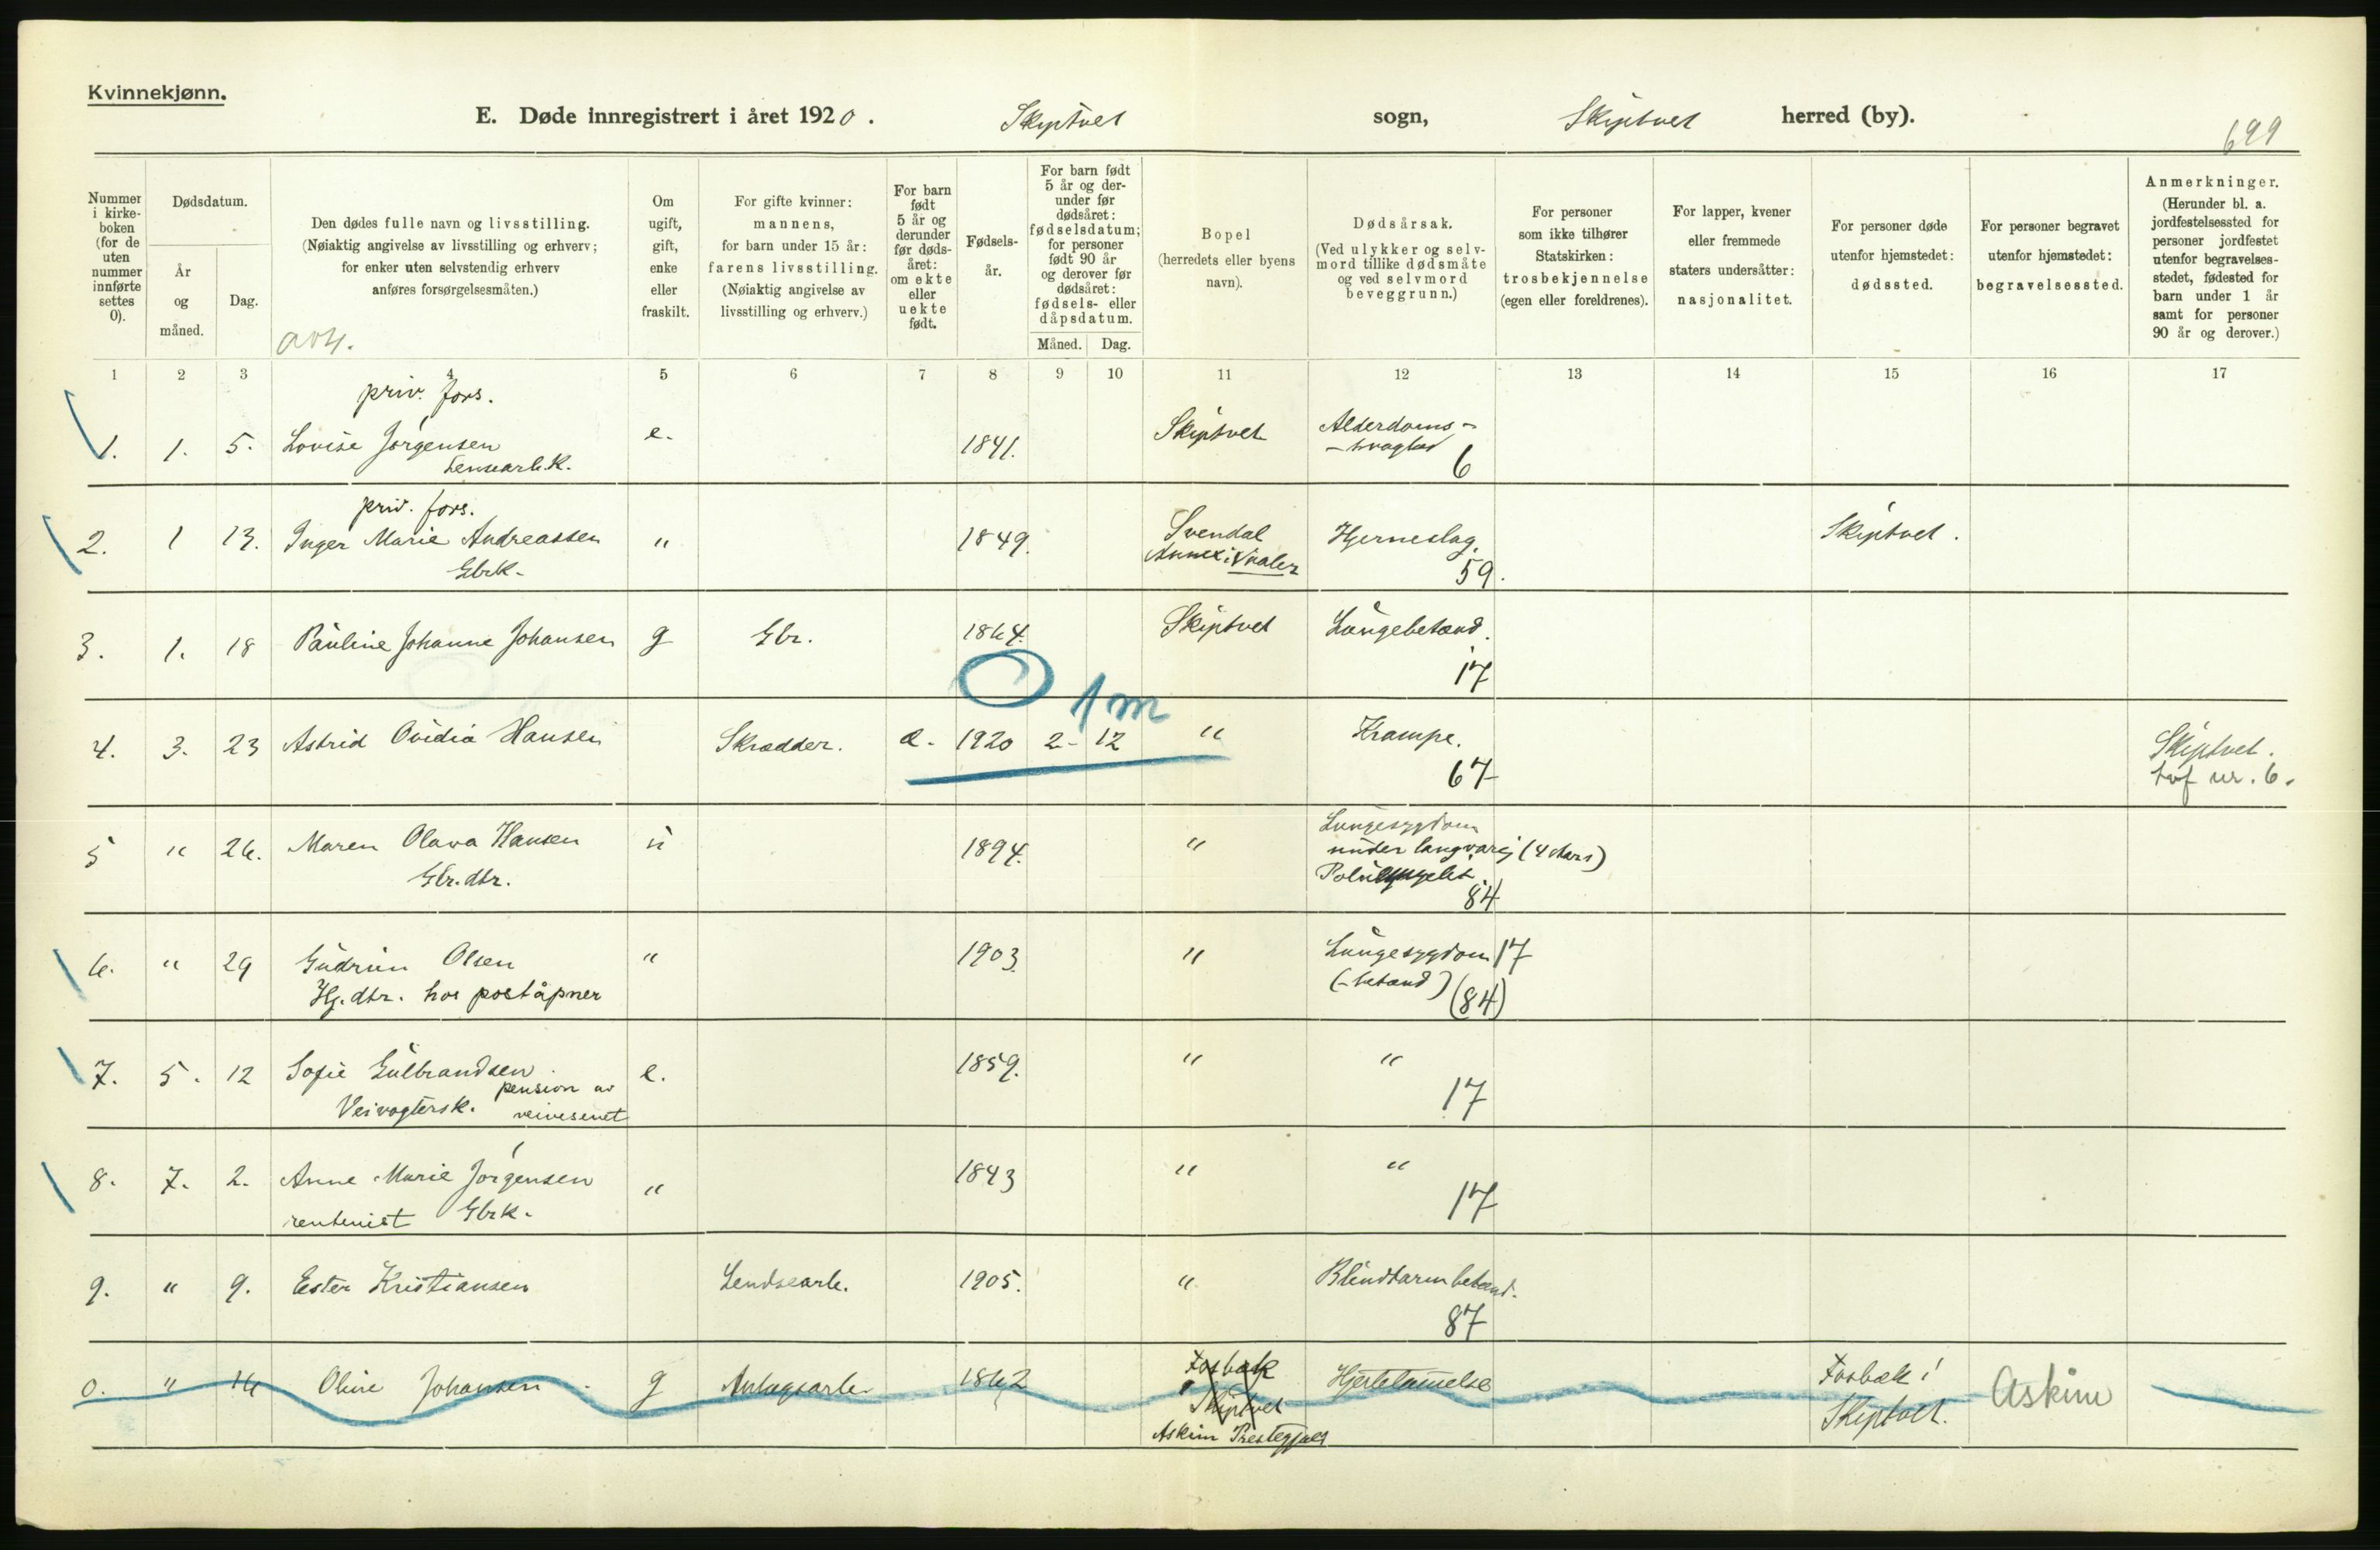 Kvinnekjønn.
E. Døde innregistrert i året 1920. Skiptvet sogn, Skiptvet herred (by).
699
Nummer i kirke-boken (for de uten nummer innførte settes 0).
Dødsdatum.
År og måned.
Dag.
Den dødes fulle navn og livsstilling.
(Nøiaktig angivelse av livsstilling og erhverv;
for enker uten selvstendig erhverv
anføres forsørgelsesmåten.)
Om ugift, gift, enke eller fraskilt.
For gifte kvinner:
mannens,
for barn under 15 år:
farens livsstilling.
(Nøiaktig angivelse av
livsstilling og erhverv.)
For barn født 5 år og derunder før døds-året: om ekte eller uekte født.
Fødsels-år.
For barn født 5 år og der-under før dødsåret: fødselsdatum; for personer født 90 år og derover før dødsåret: fødsels- eller dåpsdatum.
Måned. Dag.
Bopel
(herredets eller byens
navn).
Dødsårsak.
(Ved ulykker og selv-
mord tillike dødsmåte
og ved selvmord
beveggrunn.)
For personer
som ikke tilhører
Statskirken:
trosbekjennelse
(egen eller foreldrenes).
For lapper, kvener
eller fremmede
staters undersåtter:
nasjonalitet.
For personer døde
utenfor hjemstedet:
dødssted.
For personer begravet
utenfor hjemstedet:
begravelsessted.
Anmerkninger.
(Herunder bl. a.
jordfestelsessted for
personer jordfestet
utenfor begravelses-
stedet, fødested for
barn under 1 år
samt for personer
90 år og derover.)
1 2 3 4 5 6 7 8 9 10 11 12 13 14 15 16 17
priv. fors.
1. 1. 5. Lovise Jørgensen e. 1841. Skiptvet Alderdoms-
-svaghed
6
priv. fors.
2. 1 13. Inger Marie Andreassen " 1849. Svendal Hjerneslag. Skiptvet.
Gbrk. Annex i Vaaler
59.
3. 1. 18 Pauline Johanne Johansen g Gbr. 1864. Skiptvet Lungebetænd.
17
1 m
4. 3. 23 Astrid Ovidia Hansen Skrædder. e. 1920 2- 12 " Krampe. Skiptvet.
67 nr. 6.
Lungesygdom
5 " 26. Maren Olava Hansen u 1894. " under langvarig (4 Aars)
Gbr. dtr.
84
6. " 29 Gudrun Olsen " 1903. " Lungesygdom 17
Hj. dtr. hos poståpner (-betænd) (84)
7. 5. 12 Sofie Gulbrandsen e. 1859. " "
Veivogtersk. pension av veivesenet
17
8. 7. 2. Anne Marie Jørgensen " 1843 " "
rentenist Gbrk.
17
9. " 9. Ester Kristiansen Lendsearb. 1905. " Blindtarmbetænd.
87
0. " 16 Oline Johansen g Anlægsarb. 1862 Fosbæk Hjertelammelse Fosbæk i Askim
Skiptvet Skiptvet.
Askim Prestegjæld